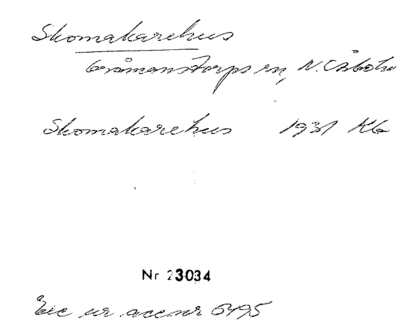 Skomakarehus
Gråmanstorps sn, N. Åsbo hd
Skomakarehus 1931 Kb
Nr 23034
Exc ur accnr 5495